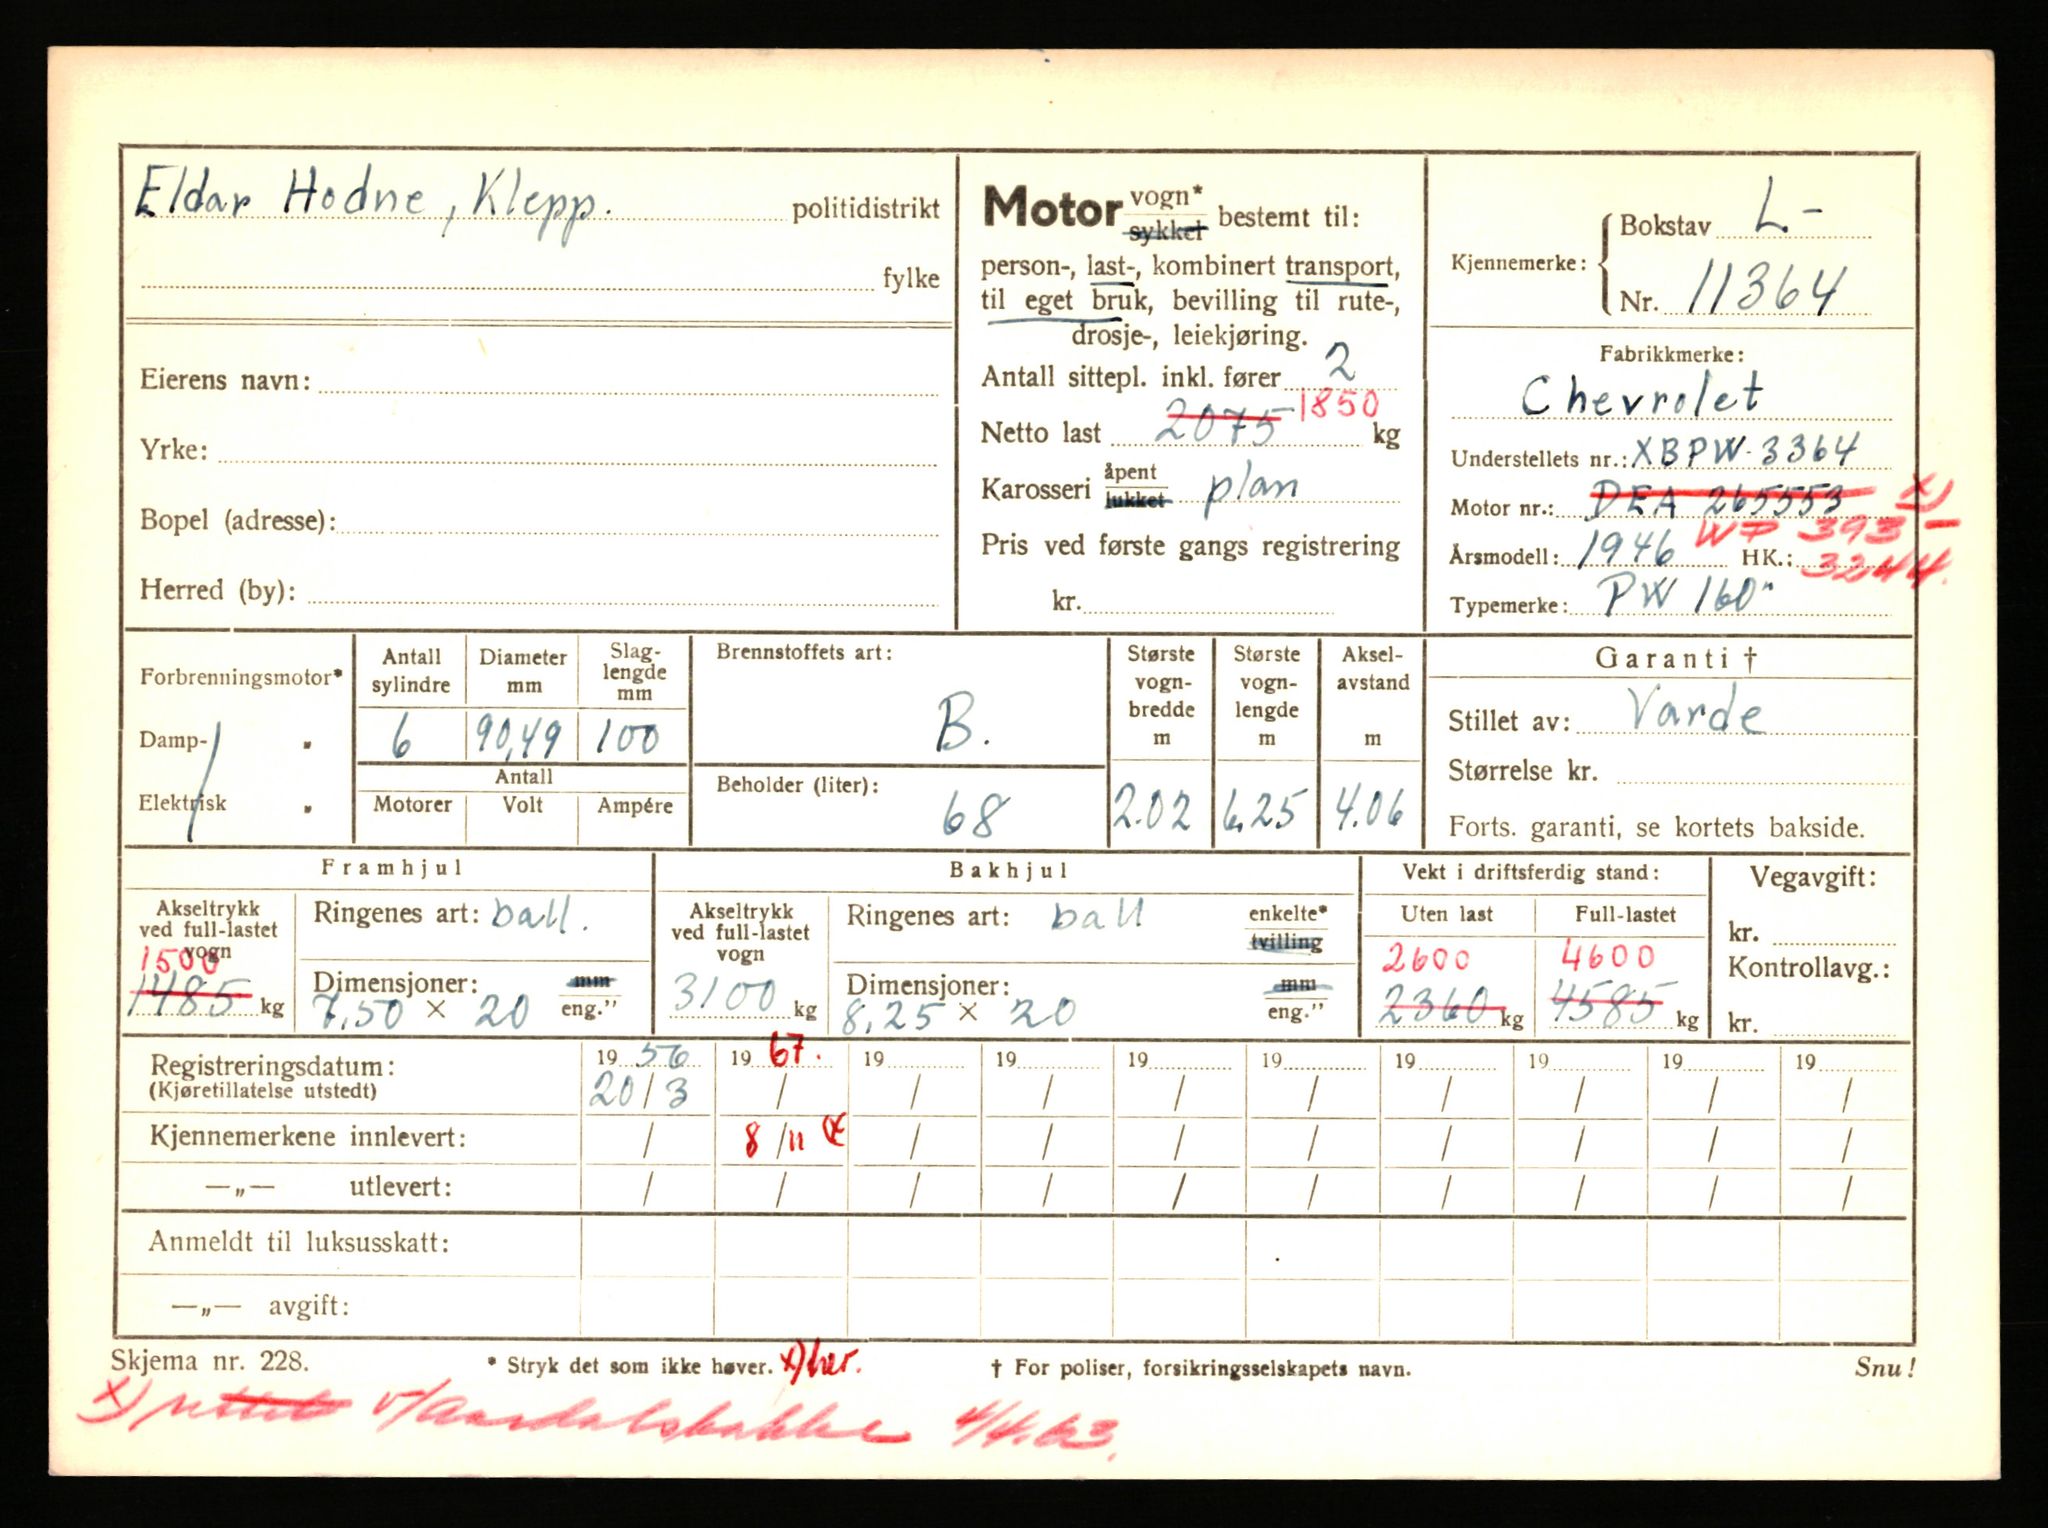 Eldar Hodne, Klepp. politidistrikt
fylke
Eierens navn:
Yrke:
Bopel (adresse):
Herred (by):
Motor vogn* sykkel bestemt til:
person-, last-, kombinert transport,
til eget bruk, bevilling til rute-,
drosje-, leiekjøring.
Antall sittepl. inkl. fører 2
Netto last 2075 1850 kg
Karosseri åpent lukket plan
Pris ved første gangs registrering
kr.
Kjennemerke: Bokstav L-
Nr. 11364
Fabrikkmerke:
Chevrolet
Understellets nr.: XBPW-3364
Motor nr.: DEA 265553 x)
WP 393-
Årsmodell: 1946 HK.: 3244.
Typemerke: PW 160"
Forbrenningsmotor*
Damp- "
Elektrisk "
Antall sylindre
6
Diameter mm
90,49
Slag-lengde mm
100
Antall
Motorer Volt Ampére
Brennstoffets art:
B.
Beholder (liter):
68
Største vogn-bredde m
2.02
Største vogn-lengde m
6.25
Aksel-avstand m
4.06
Garanti †
Stillet av: Varde
Størrelse kr.
Forts. garanti, se kortets bakside.
Framhjul
Akseltrykk ved full-lastet vogn
1500
1485 kg
Ringenes art: ball.
Dimensjoner: mm
7,50 × 20 eng."
Bakhjul
Akseltrykk ved full-lastet vogn
3100 kg
Ringenes art: ball enkelte* tvilling
Dimensjoner: mm
8,25 × 20 eng."
Vekt i driftsferdig stand:
Uten last Full-lastet
2600 4600
2360 kg 4585 kg
Vegavgift:
kr.
Kontrollavg.:
kr.
Registreringsdatum: 19 56 19 67. 19 19 19 19 19 19 19 19
(Kjøretillatelse utstedt) 20/3 / / / / / / / / /
Kjennemerkene innlevert: / 8/11 / / / / / / / /
—„— utlevert: / / / / / / / / / /
Anmeldt til luksusskatt:
—„— avgift:
Skjema nr. 228. * Stryk det som ikke høver. x) her. † For poliser, forsikringsselskapets navn. Snu!
x) rettet v/Aardalsbakke 4/4.63.